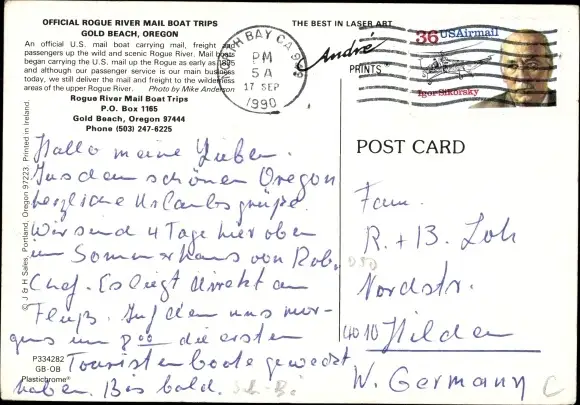 OFFICIAL ROGUE RIVER MAIL BOAT TRIPS
GOLD BEACH, OREGON
An official U.S. mail boat carrying mail, freight and
passengers up the wild and scenic Rogue River. Mail boats
began carrying the U.S. mail up the Rogue as early as 1895
and although our passenger service is our main business
today, we still deliver the mail and freight to the wilderness
areas of the upper Rogue River. Photo by Mike Anderson
Rogue River Mail Boat Trips
P.O. Box 1165
Gold Beach, Oregon 97444
Phone (503) 247-6225
© J & H Sales, Portland, Oregon 97223. Printed in Ireland.
Hallo meine Lieben.
Aus dem schönen Oregon
herzliche Urlaubsgrüße.
Wir sind 4 Tage hier oben
im Sommerhaus von Rob.
Chef. Es liegt direkt am
Fluß. Auf dem uns mor-
gens um 8 00 die ersten
Touristenboote geweckt
haben. Bis bald.
P334282
GB-OB
Plastichrome®
THE BEST IN LASER ART
André
PRINTS
BAY CA
PM
5A
17 SEP
1990
36 USAirmail
Igor Sikorsky
POST CARD
Fam.
R. + B. Loh
Nordstr.
4010 Hilden
W. Germany